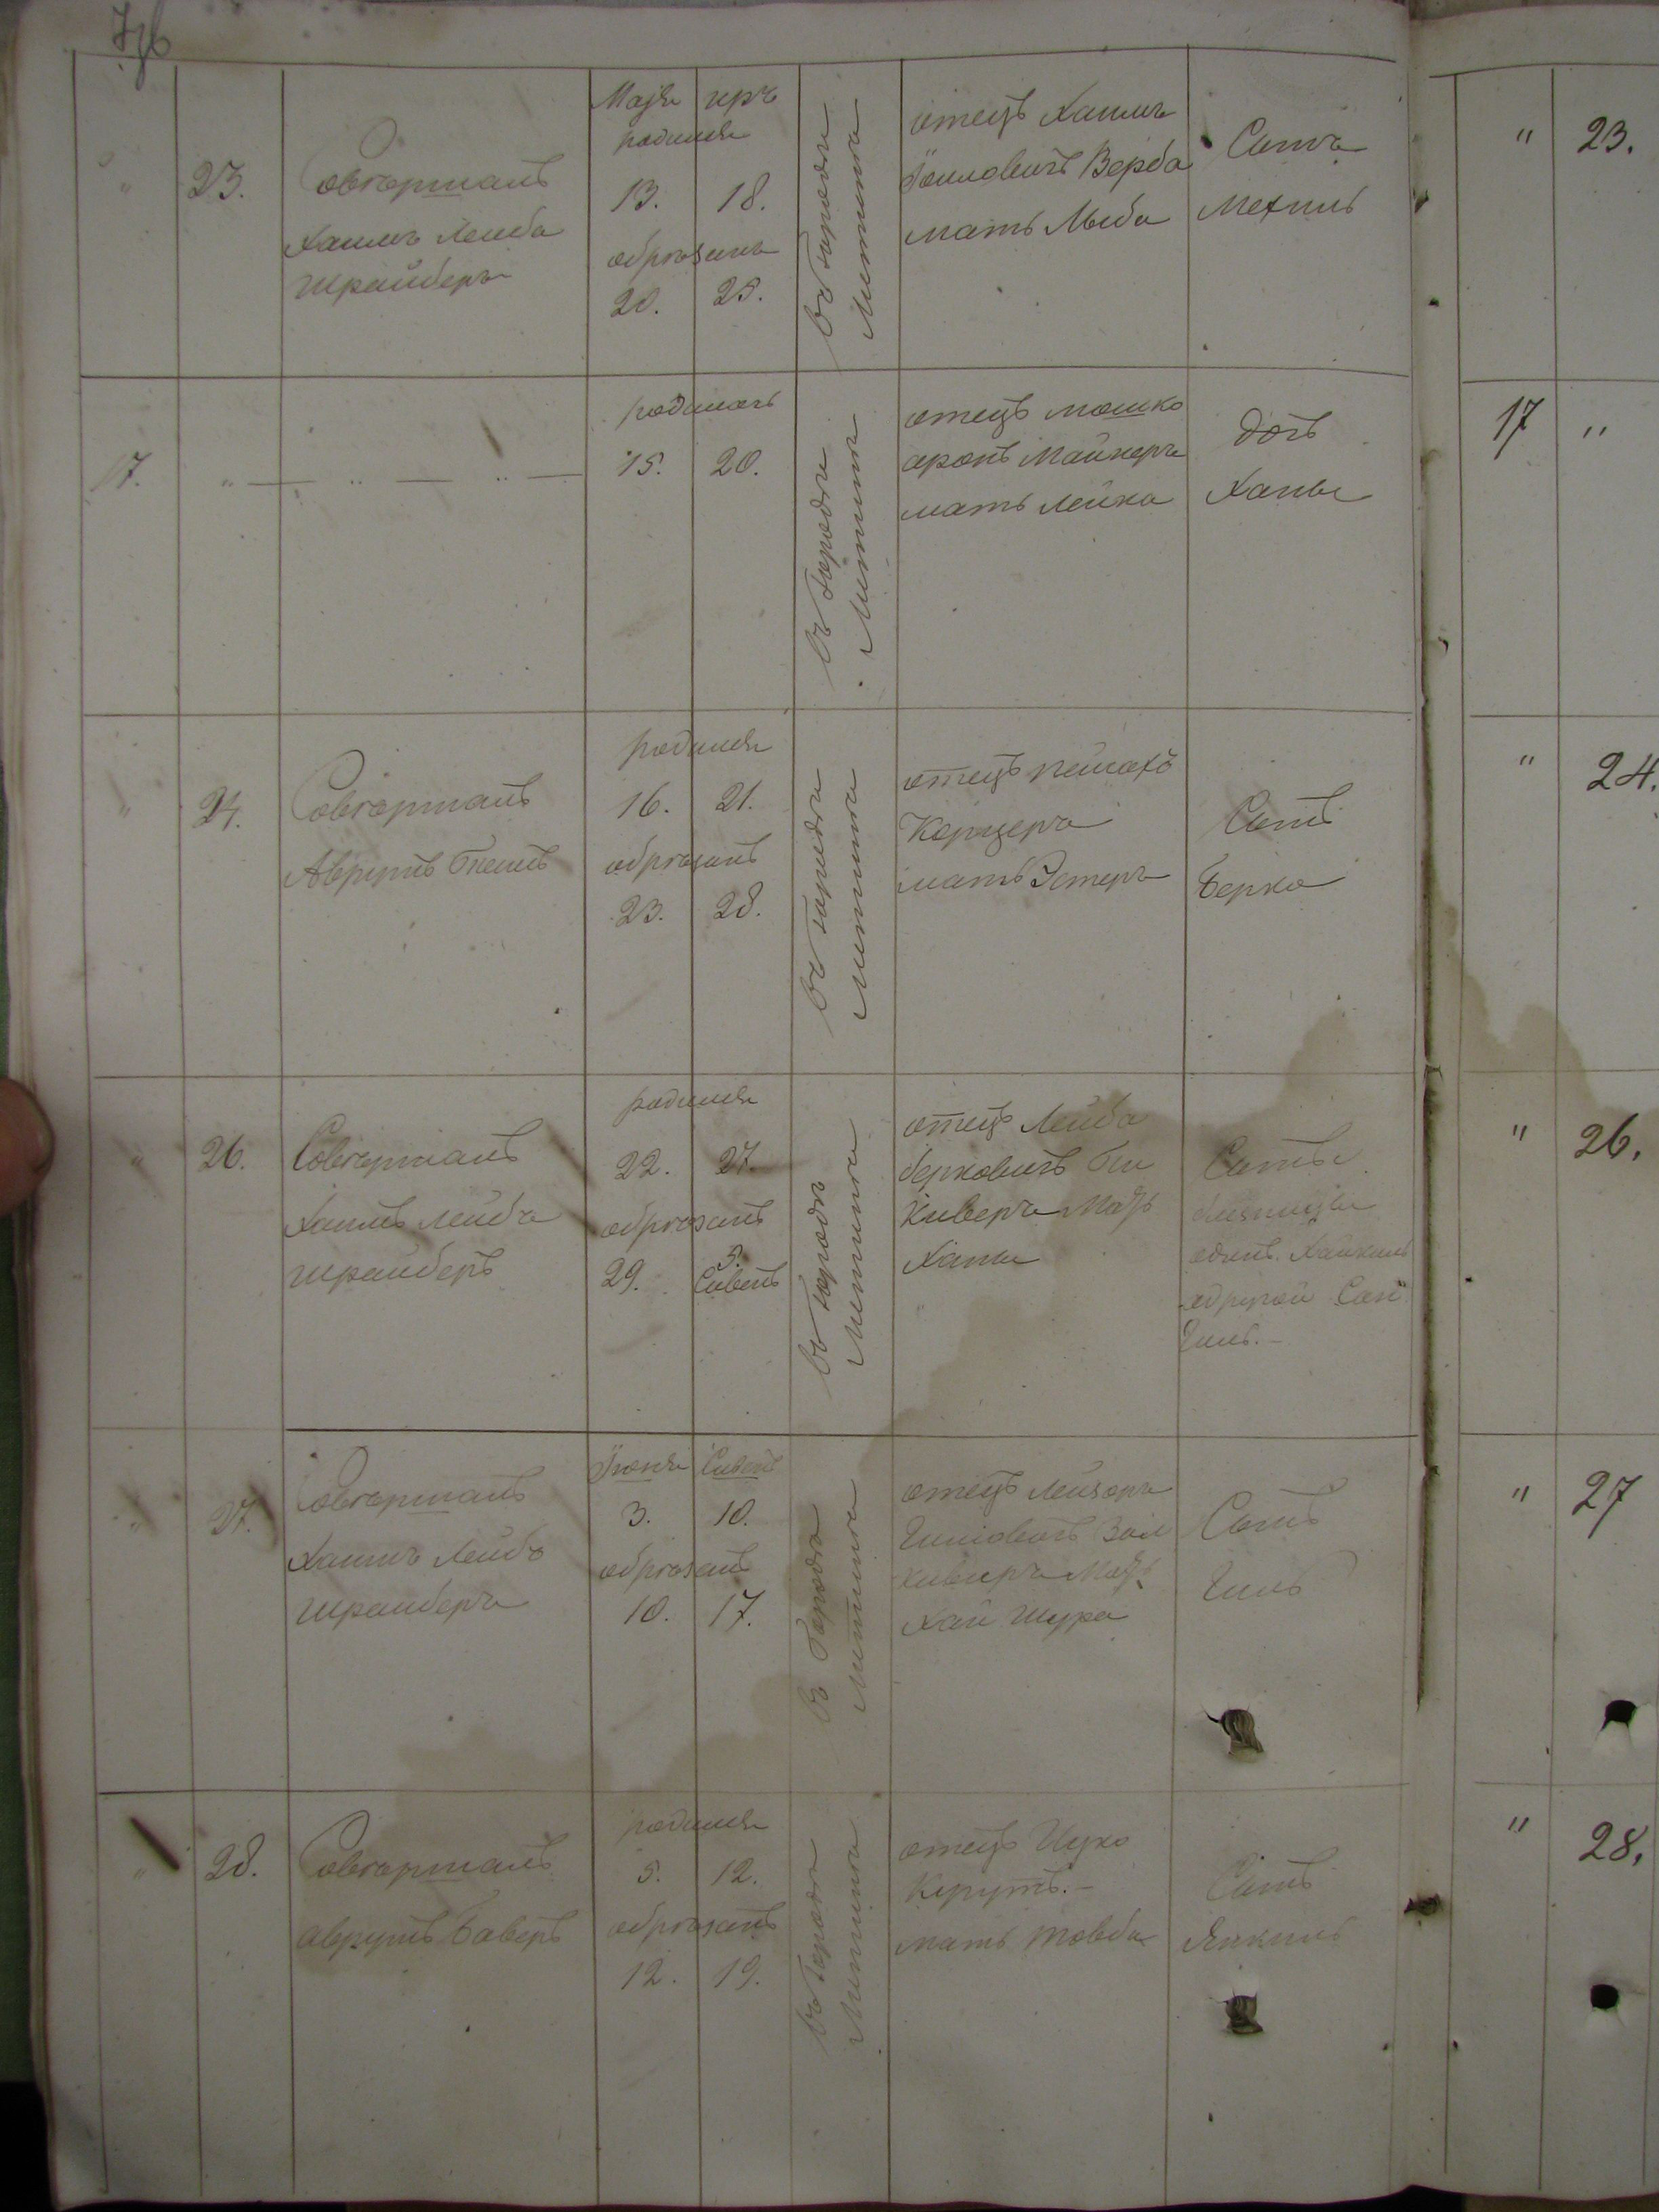 23.
Совершалъ
Хаимъ Лейба
Шрайберъ
Маія иръ
родился
13. 18.
обрѣзанъ
20. 25.
въ городѣ
Литинѣ
отецъ Хаимъ
Іойловичъ Верба
мать Лыба
Сынъ
Мехиль
" 23.
17.
" — " — " —
родилась
15. 20.
въ городѣ
Литинѣ
отецъ Мошко
аронъ Майнеръ
мать Лейка
дочь
Ханы
17 "
" 24.
Совершалъ
Аврумъ
родился
16. 21.
обрѣзанъ
23. 28.
въ городѣ
Литинѣ
отецъ Пейсахъ
Корцеръ
мать Эстеръ
Сынъ
Берко
" 24.
" 26.
Совершалъ
Хаимъ Лейба
Шрайберъ
родился
22. 27.
обрѣзанъ
29. 5. Сивенъ
въ городѣ
Литинѣ
отецъ Лейба
берковичъ
Киверъ Мать
Ханы
Сыны
близнецы
одинъ
а другой
" 26.
" 27.
Совершалъ
Хаимъ Лейбъ
Шрайберъ
Іюня Сивенъ
3. 10.
обрѣзанъ
10. 17.
въ Городѣ
Литинѣ
отецъ Лейзоръ
Мать
Хая Шура
Сынъ
" 27
" 28.
Совершалъ
аврумъ Баверъ
родился
5. 12.
обрѣзанъ
12. 19.
въ городѣ
Литинѣ
отецъ Ицко
мать Товба
Сынъ
Янкиль
" 28.